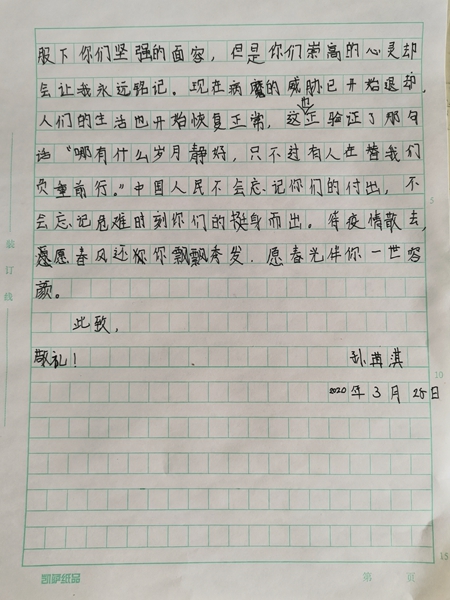 服下你们坚强的面容，但是你们崇高的心灵却
会让我永远铭记。现在病魔的威胁已开始退却，
人们的生活也开始恢复正常，这也正验证了那句
话“哪有什么岁月静好，只不过有人在替我们
负重前行。”中国人民不会忘记你们的付出，不
会忘记危难时刻你们的挺身而出。待疫情散去，
愿春风还你你飘飘秀发，愿春光伴你一世容
颜。
此致，
敬礼！
孙苒淇
2020年3月25日
装订线
5
10
15
凯萨纸品
第 页